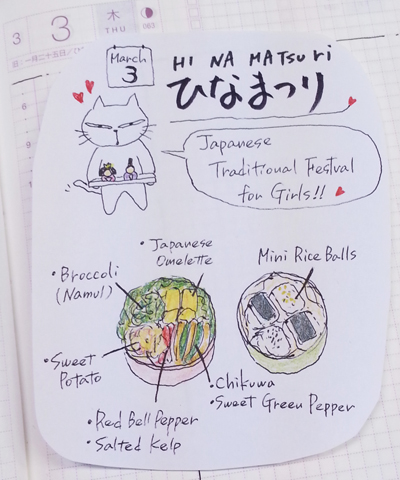 3
3
木
THU
063
March
3
HI NA MATSURI
ひなまつり
Japanese
Traditional Festval
for Girls!!
・Japanese
Omelette
・Broccoli
(Namul)
Mini Rice Balls
・Sweet
Potato
・Chikuwa
・Sweet Green Pepper
・Red Bell Pepper
・Salted Kelp